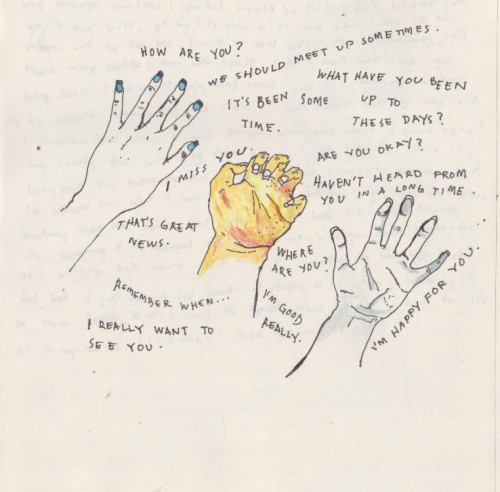 HOW ARE YOU?
WE SHOULD MEET UP SOMETIMES.
IT'S BEEN SOME
TIME.
WHAT HAVE YOU BEEN
UP TO
THESE DAYS?
I MISS YOU.
ARE YOU OKAY?
HAVEN'T HEARD FROM
YOU IN A LONG TIME.
THAT'S GREAT
NEWS.
WHERE
ARE YOU?
REMEMBER WHEN...
I'M GOOD
REALLY.
I'M HAPPY FOR YOU.
I REALLY WANT TO
SEE YOU.